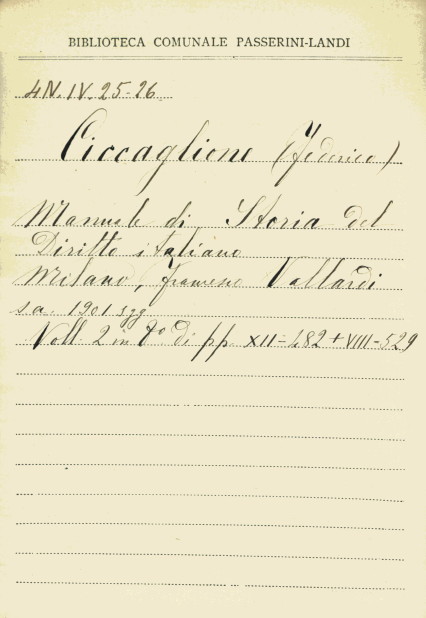 BIBLIOTECA COMUNALE PASSERINI-LANDI
4N.IV.25-26
Ciccaglione (Federico)
Manuale di Storia del
Diritto italiano
Milano, Francesco Vallardi
s.a. 1901 sgg
Voll. 2 in 8° di pp. XII-482 + VIII-529